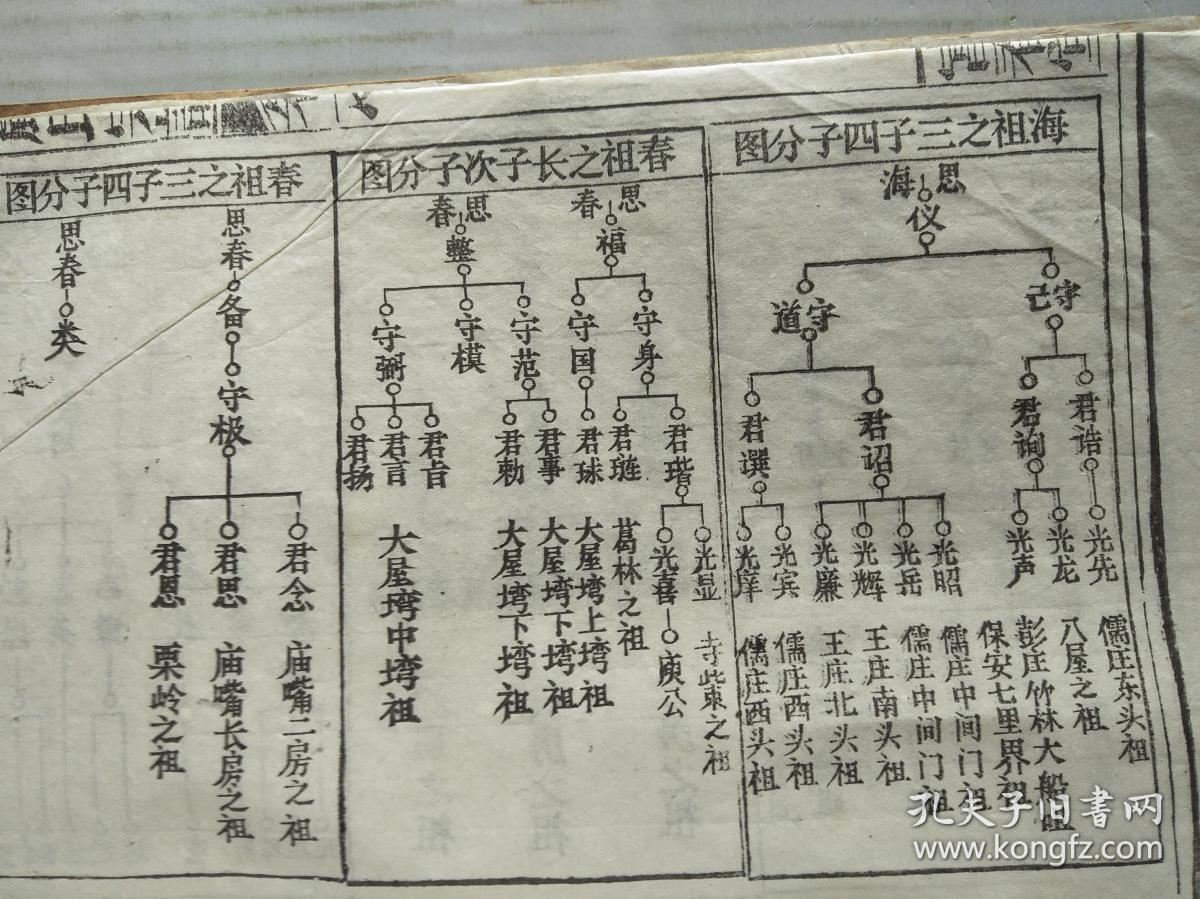 海祖之三子四子分图
思海
仪
守己
守道
君诰
君询
君诏
君譔
光先
光龙
光声
光昭
光岳
光辉
光廉
光宾
光庠
儒庄东头祖
八屋之祖
彭庄竹林大船祖
保安七里界祖
儒庄中间门祖
儒庄中间门祖
王庄南头祖
王庄北头祖
儒庄西头祖
儒庄西头祖
春祖之长子次子分图
思春
福
守身
守国
君瑎
君琏
君球
光显
光喜
庚公
寺柴束之祖
葛林之祖
大屋塆上塆祖
思春
整
守范
守模
守弼
君事
君勅
君旨
君言
君扬
大屋塆下塆祖
大屋塆下塆祖
大屋塆中塆祖
春祖之三子四子分图
思春
备
守极
君念
君思
君恩
庙嘴二房之祖
庙嘴长房之祖
栗岭之祖
思春
类
孔夫子旧书网
www.kongfz.com